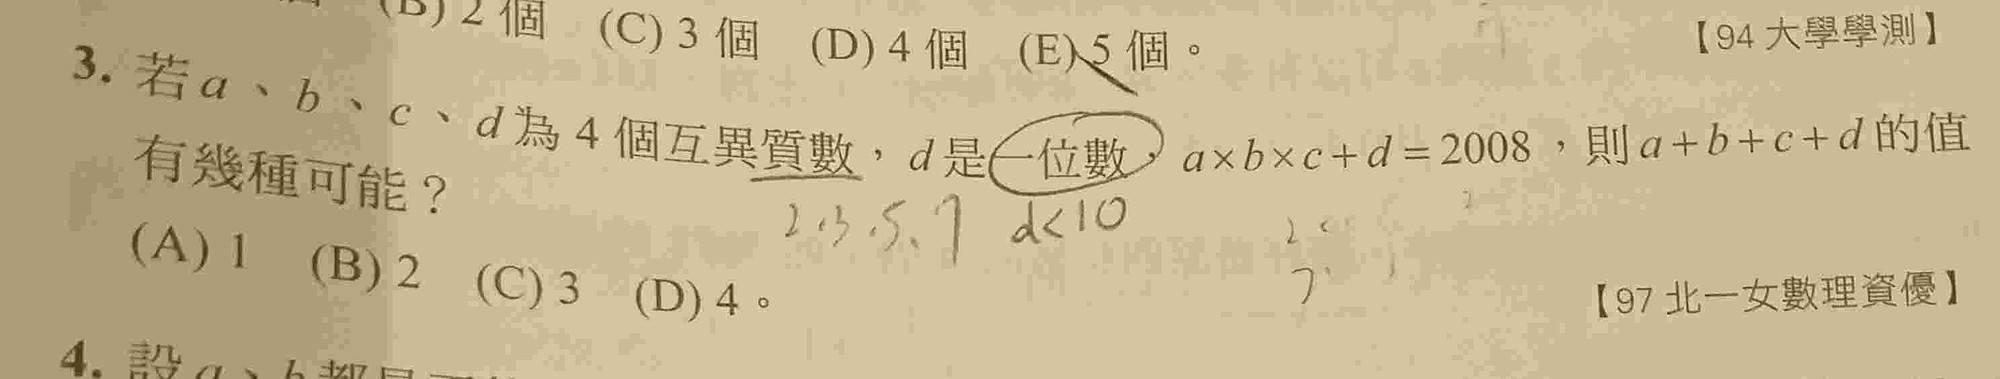 (B) 2 個 (C) 3 個 (D) 4 個 (E) 5 個。 【94 大學學測】
3. 若 a、b、c、d 為 4 個互異質數，d 是一位數，a×b×c+d=2008，則 a+b+c+d 的值
有幾種可能？
2.3.5.7 d<10
(A) 1 (B) 2 (C) 3 (D) 4。
【97 北一女數理資優】
4. 設 a、b 都是